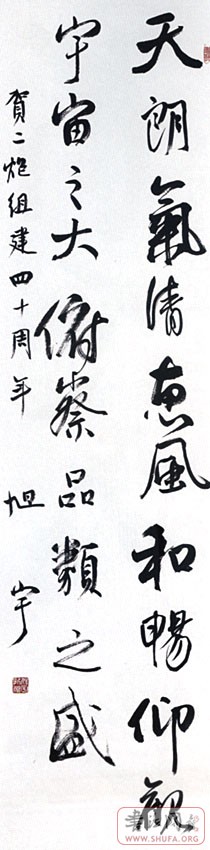 天朗氣清惠風和暢仰觀
宇宙之大俯察品類之盛
賀二炮組建四十周年
旭宇
WWW.SHUFA.ORG